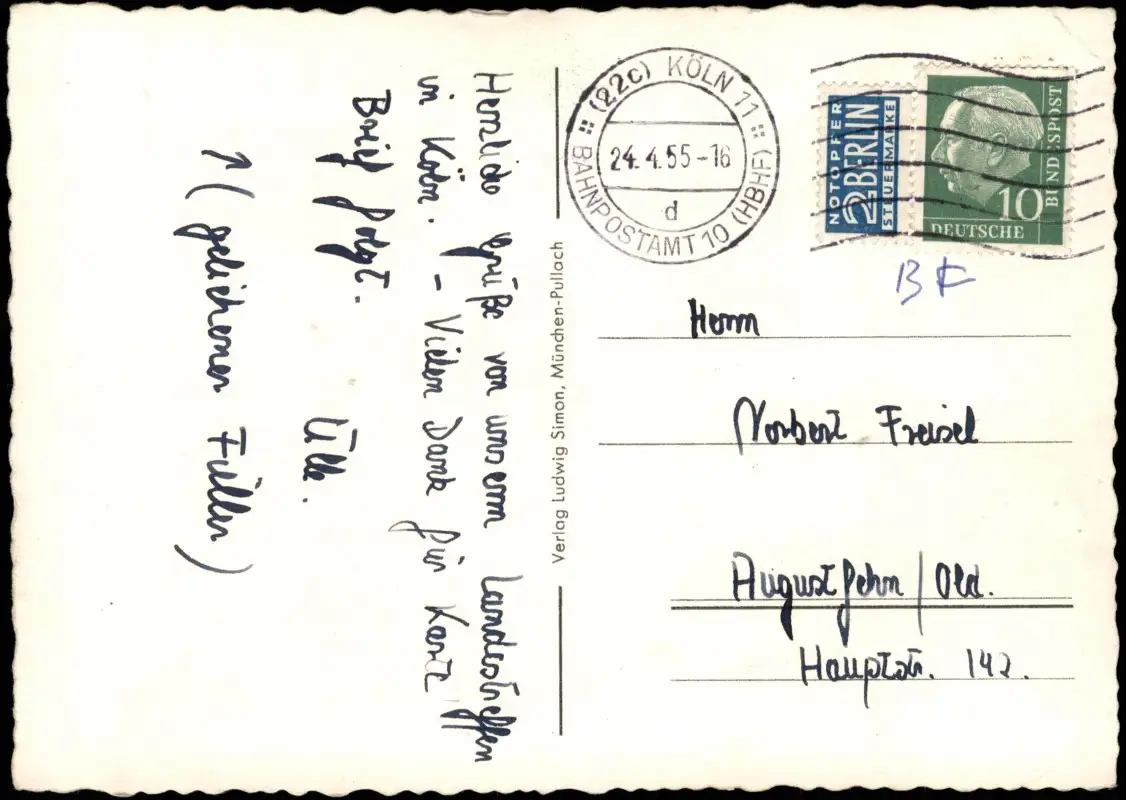 Herzliche Grüße von unserm Landestreffen
in Köln. – Vielen Dank für Karte!
Brief folgt.
Ulle.
↑ (geliehener Füller)
Verlag Ludwig Simon, München-Pullach
(22c) KÖLN 11
24.4.55-16
d
BAHNPOSTAMT 10 (HBHF)
NOTOPFER
2 BERLIN
STEUERMARKE
10
DEUTSCHE
BUNDESPOST
Herrn
Norbert Freisel
Augustfehn/Old.
Hauptstr. 142.